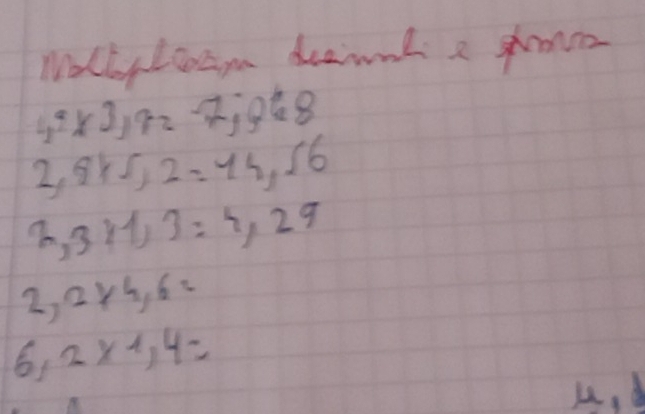 Moltiplicazioni decimali e prova
2,8x5,2=14,56
3,3x1,3=4,29
2,2x4,6=
6,2x1,4=